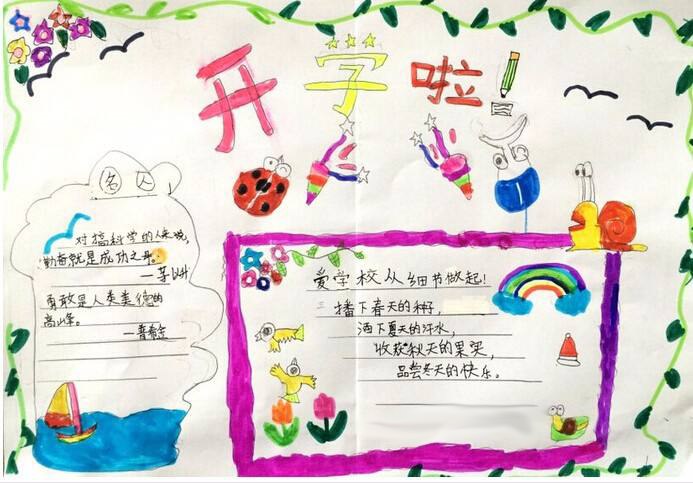 开学啦!
名人
对搞科学的人来说,
勤奋就是成功之母。
—茅以升
勇敢是人类美德的
高峰。
—普希金
爱学校从细节做起!
播下春天的种子,
洒下夏天的汗水,
收获秋天的果实,
品尝冬天的快乐。